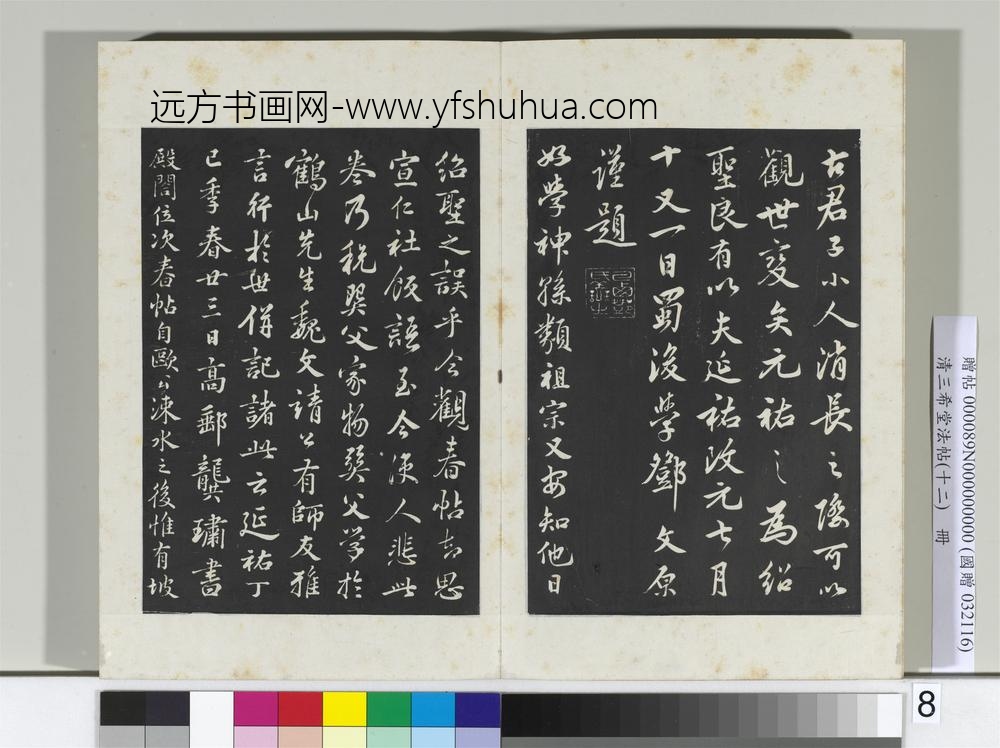 远方书画网-www.yfshuhua.com
古君子小人消長之際可以
觀世變矣元祐之爲紹
聖良有以夫延祐改元七月
十又一日蜀後學鄧文原
謹題
好學神孫類祖宗又安知他日
紹聖之誤乎今觀春帖知思
宣仁社飯語至今使人悲此
卷乃税巽父家物巽父学於
鶴山先生魏文靖公有師友雅
言行於世併記諸此云延祐丁
巳季春廿三日高郵龔璛書
殿閣位次春帖自歐公涑水之後惟有坡
贈帖 000089N000000000 (國贈 032116)
清三希堂法帖(十二) 冊
8